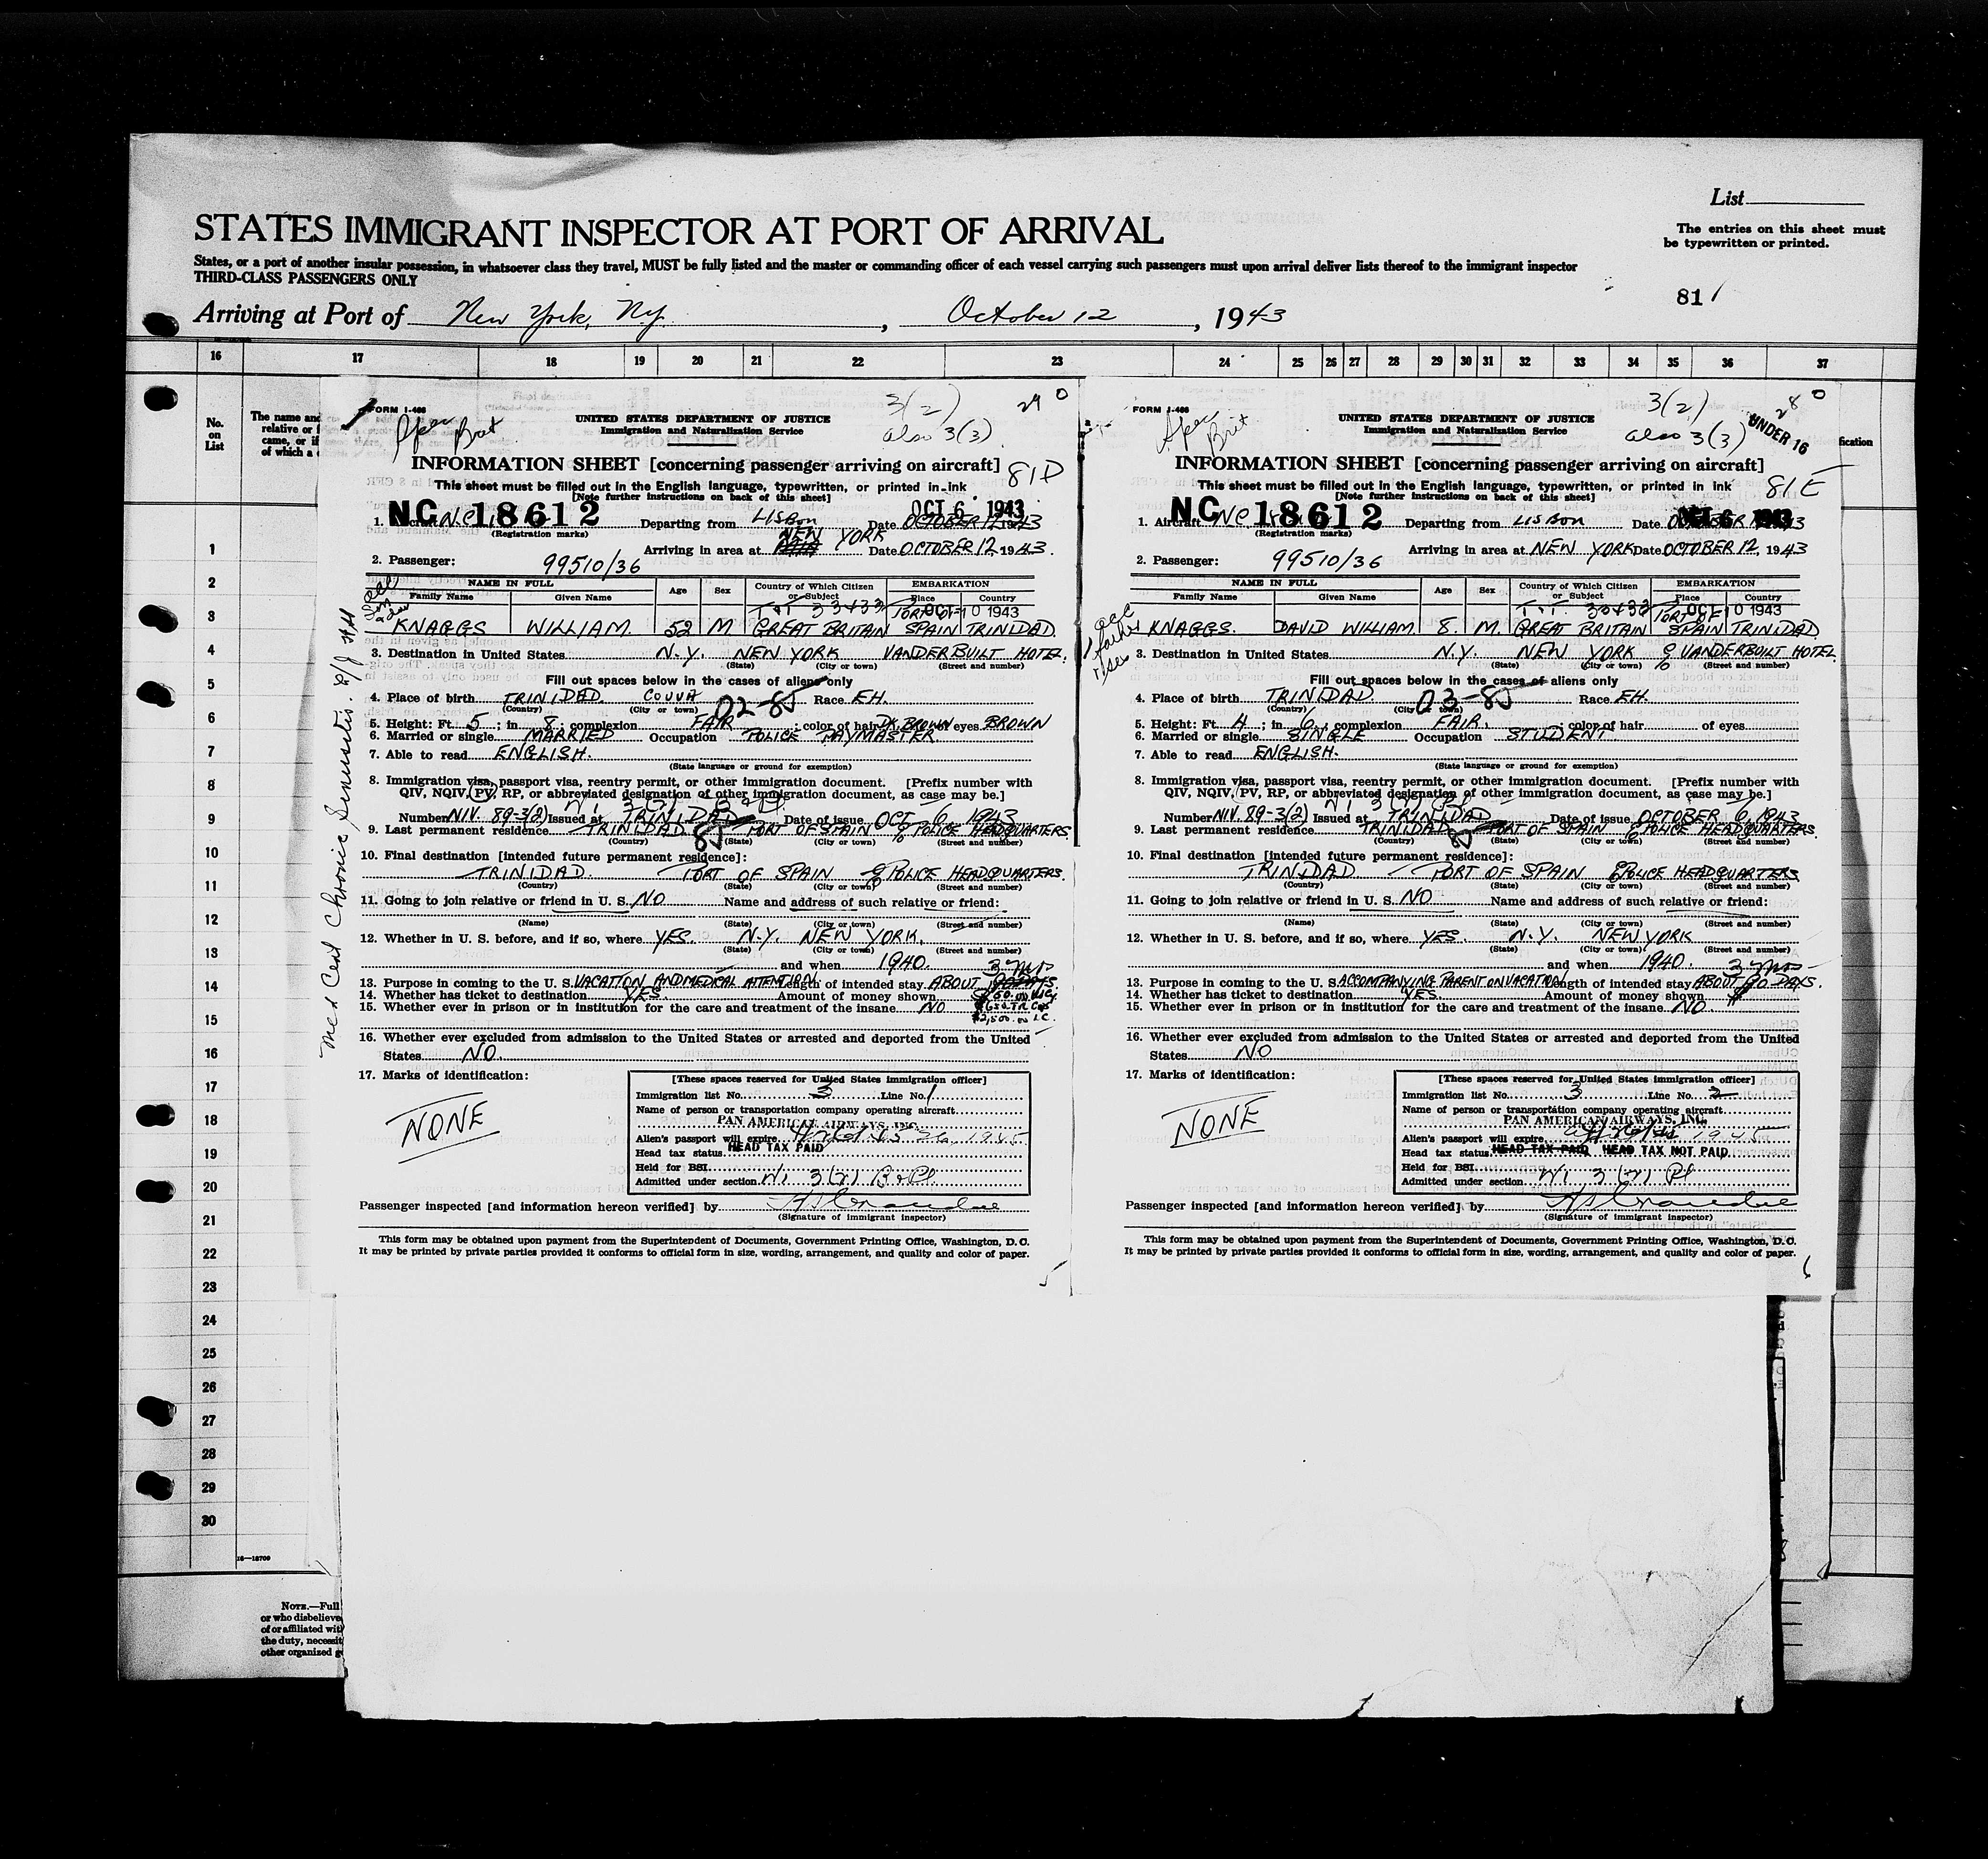 List
STATES IMMIGRANT INSPECTOR AT PORT OF ARRIVAL
The entries on this sheet must
be typewritten or printed.
States, or a port of another insular possession, in whatsoever class they travel, MUST be fully listed and the master or commanding officer of each vessel carrying such passengers must upon arrival deliver lists thereof to the immigrant inspector
THIRD-CLASS PASSENGERS ONLY
81
Arriving at Port of New York, N.Y. , October 12 , 1943
16 17 18 19 20 21 22 23 24 25 26 27 28 29 30 31 32 33 34 35 36 37
No.
on
List
The name and
relative or f
came, or if
of which a
1
2
3
4
5
6
7
8
9
10
11
12
13
14
15
16
17
18
19
20
21
22
23
24
25
26
27
28
29
30
16—18709
NOTE.—Full
or who disbelieve
of or affiliated wit
the duty, necessit
other organized g
Med Cert Chronic Sinusitis.
FORM I-466
UNITED STATES DEPARTMENT OF JUSTICE
Immigration and Naturalization Service
3(2)
also 3(3)
29 0
Brit
INFORMATION SHEET [concerning passenger arriving on aircraft]
81D
This sheet must be filled out in the English language, typewritten, or printed in ink
[Note further instructions on back of this sheet]
NC 18612
OCT 6 1943
1. Aircraft NC Departing from LISBON Date OCTOBER 12 1943
(Registration marks)
Arriving in area at NEW YORK Date OCTOBER 12 1943.
2. Passenger: 99510/36
NAME IN FULL Age Sex Country of Which Citizen or Subject EMBARKATION
Family Name Given Name Place Country
OCT 10 1943
KNAGGS WILLIAM. 52 M GREAT BRITAIN PORT OF SPAIN TRINIDAD.
3. Destination in United States N.Y. NEW YORK VANDERBUILT HOTEL.
(State) (City or town) (Street and number)
Fill out spaces below in the cases of aliens only
4. Place of birth TRINIDAD. COUVA Race EH.
(Country) (City or town)
02-85
5. Height: Ft. 5; in 8; complexion FAIR; color of hair DK. BROWN of eyes BROWN
6. Married or single MARRIED Occupation POLICE PAYMASTER
7. Able to read ENGLISH.
(State language or ground for exemption)
8. Immigration visa, passport visa, reentry permit, or other immigration document. [Prefix number with
QIV, NQIV, PV, RP, or abbreviated designation of other immigration document, as case may be.]
Number NIV. 89-3(2) Issued at TRINIDAD Date of issue OCT 6 1943
9. Last permanent residence TRINIDAD PORT OF SPAIN % POLICE HEADQUARTERS.
(Country) (State) (City or town) (Street and number)
85
10. Final destination [intended future permanent residence]:
TRINIDAD. PORT OF SPAIN % POLICE HEADQUARTERS
(Country) (State) (City or town) (Street and number)
11. Going to join relative or friend in U. S. NO Name and address of such relative or friend:
(Name) (State) (City or town) (Street and number)
12. Whether in U. S. before, and if so, where YES. N.Y. NEW YORK.
(State) (City or town) (Street and number)
and when 1940.
3 mos
13. Purpose in coming to the U. S. VACATION AND MEDICAL ATTENTION Length of intended stay ABOUT
14. Whether has ticket to destination YES. Amount of money shown
15. Whether ever in prison or in institution for the care and treatment of the insane NO
16. Whether ever excluded from admission to the United States or arrested and deported from the United
States NO
17. Marks of identification:
NONE
[These spaces reserved for United States immigration officer]
Immigration list No. 3 Line No. 1
Name of person or transportation company operating aircraft
PAN AMERICAN AIRWAYS, INC.
Alien's passport will expire 1945
Head tax status HEAD TAX PAID
Held for BSI
Admitted under section 3(2)
Passenger inspected [and information hereon verified] by
(Signature of immigrant inspector)
This form may be obtained upon payment from the Superintendent of Documents, Government Printing Office, Washington, D. C.
It may be printed by private parties provided it conforms to official form in size, wording, arrangement, and quality and color of paper.
5
FORM I-466
UNITED STATES DEPARTMENT OF JUSTICE
Immigration and Naturalization Service
3(2)
also 3(3)
28 0
UNDER 16
fication
Brit
INFORMATION SHEET [concerning passenger arriving on aircraft]
81E
This sheet must be filled out in the English language, typewritten, or printed in ink
[Note further instructions on back of this sheet]
NC 18612
1. Aircraft NC Departing from LISBON Date
(Registration marks)
Arriving in area at NEW YORK Date OCTOBER 12, 1943
2. Passenger: 99510/36
NAME IN FULL Age Sex Country of Which Citizen or Subject EMBARKATION
Family Name Given Name Place Country
OCT 10 1943
acc
father
KNAGGS. DAVID WILLIAM. 8. M. GREAT BRITAIN PORT OF SPAIN TRINIDAD
3. Destination in United States N.Y. NEW YORK % VANDERBUILT HOTEL
(State) (City or town) (Street and number)
Fill out spaces below in the cases of aliens only
4. Place of birth TRINIDAD Race EH.
(Country) (City or town)
03-85
5. Height: Ft. 4; in 6; complexion FAIR.; color of hair of eyes
6. Married or single SINGLE Occupation STUDENT
7. Able to read ENGLISH.
(State language or ground for exemption)
8. Immigration visa, passport visa, reentry permit, or other immigration document. [Prefix number with
QIV, NQIV, PV, RP, or abbreviated designation of other immigration document, as case may be.]
Number NIV. 89-3(2) Issued at TRINIDAD Date of issue OCTOBER 6, 1943
9. Last permanent residence TRINIDAD PORT OF SPAIN % POLICE HEADQUARTERS.
(Country) (State) (City or town) (Street and number)
10. Final destination [intended future permanent residence]:
TRINIDAD. PORT OF SPAIN % POLICE HEADQUARTERS
(Country) (State) (City or town) (Street and number)
11. Going to join relative or friend in U. S. NO Name and address of such relative or friend:
(Name) (State) (City or town) (Street and number)
12. Whether in U. S. before, and if so, where YES. N.Y. NEW YORK
(State) (City or town) (Street and number)
and when 1940.
3 mos
13. Purpose in coming to the U. S. ACCOMPANYING PARENT ON VACATION Length of intended stay ABOUT 90 DAYS.
14. Whether has ticket to destination YES. Amount of money shown
15. Whether ever in prison or in institution for the care and treatment of the insane NO.
16. Whether ever excluded from admission to the United States or arrested and deported from the United
States NO
17. Marks of identification:
NONE
[These spaces reserved for United States immigration officer]
Immigration list No. 3 Line No. 2
Name of person or transportation company operating aircraft
PAN AMERICAN AIRWAYS, INC.
Alien's passport will expire 1945
Head tax status HEAD TAX PAID HEAD TAX NOT PAID
Held for BSI
Admitted under section 3(2)
Passenger inspected [and information hereon verified] by
(Signature of immigrant inspector)
This form may be obtained upon payment from the Superintendent of Documents, Government Printing Office, Washington, D. C.
It may be printed by private parties provided it conforms to official form in size, wording, arrangement, and quality and color of paper.
6